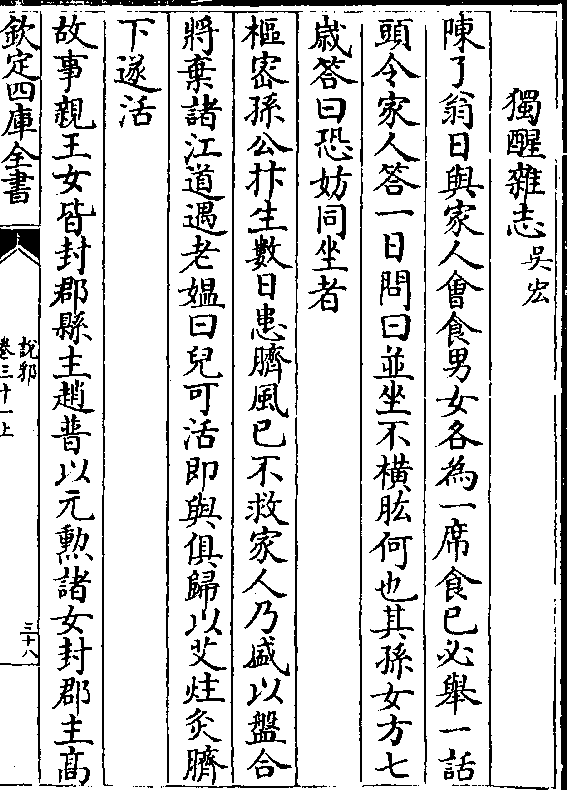 獨醒雜志吳宏
陳了翁日與家人會食男女各為一席食已必舉一話
頭令家人答一日問曰並坐不橫肱何也其孫女方七
嵗答曰恐妨同坐者
樞宻孫公抃生數日患臍風已不救家人乃盛以盤合
將棄諸江道遇老媼曰兒可活即與俱歸以艾炷灸臍
下遂活
故事親王女皆封郡縣主趙普以元勲諸女封郡主高
欽定四庫全書
說郛
卷三十一上
三十八